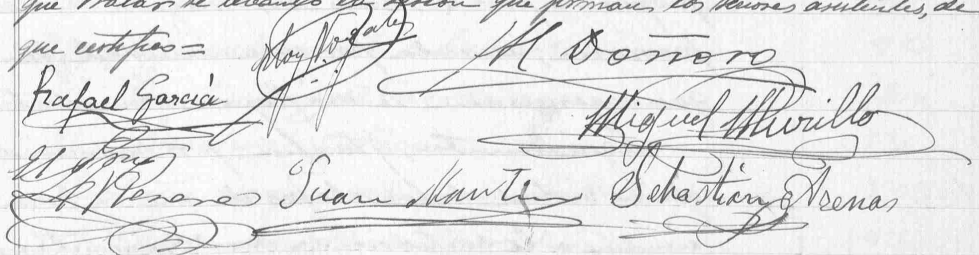 que tratar se levantó la sesión que firman, los señores asistentes, de
que certifico =
M Doñoro
Rafael García
Miguel Murillo
Juan Martin
Sebastián Arenas